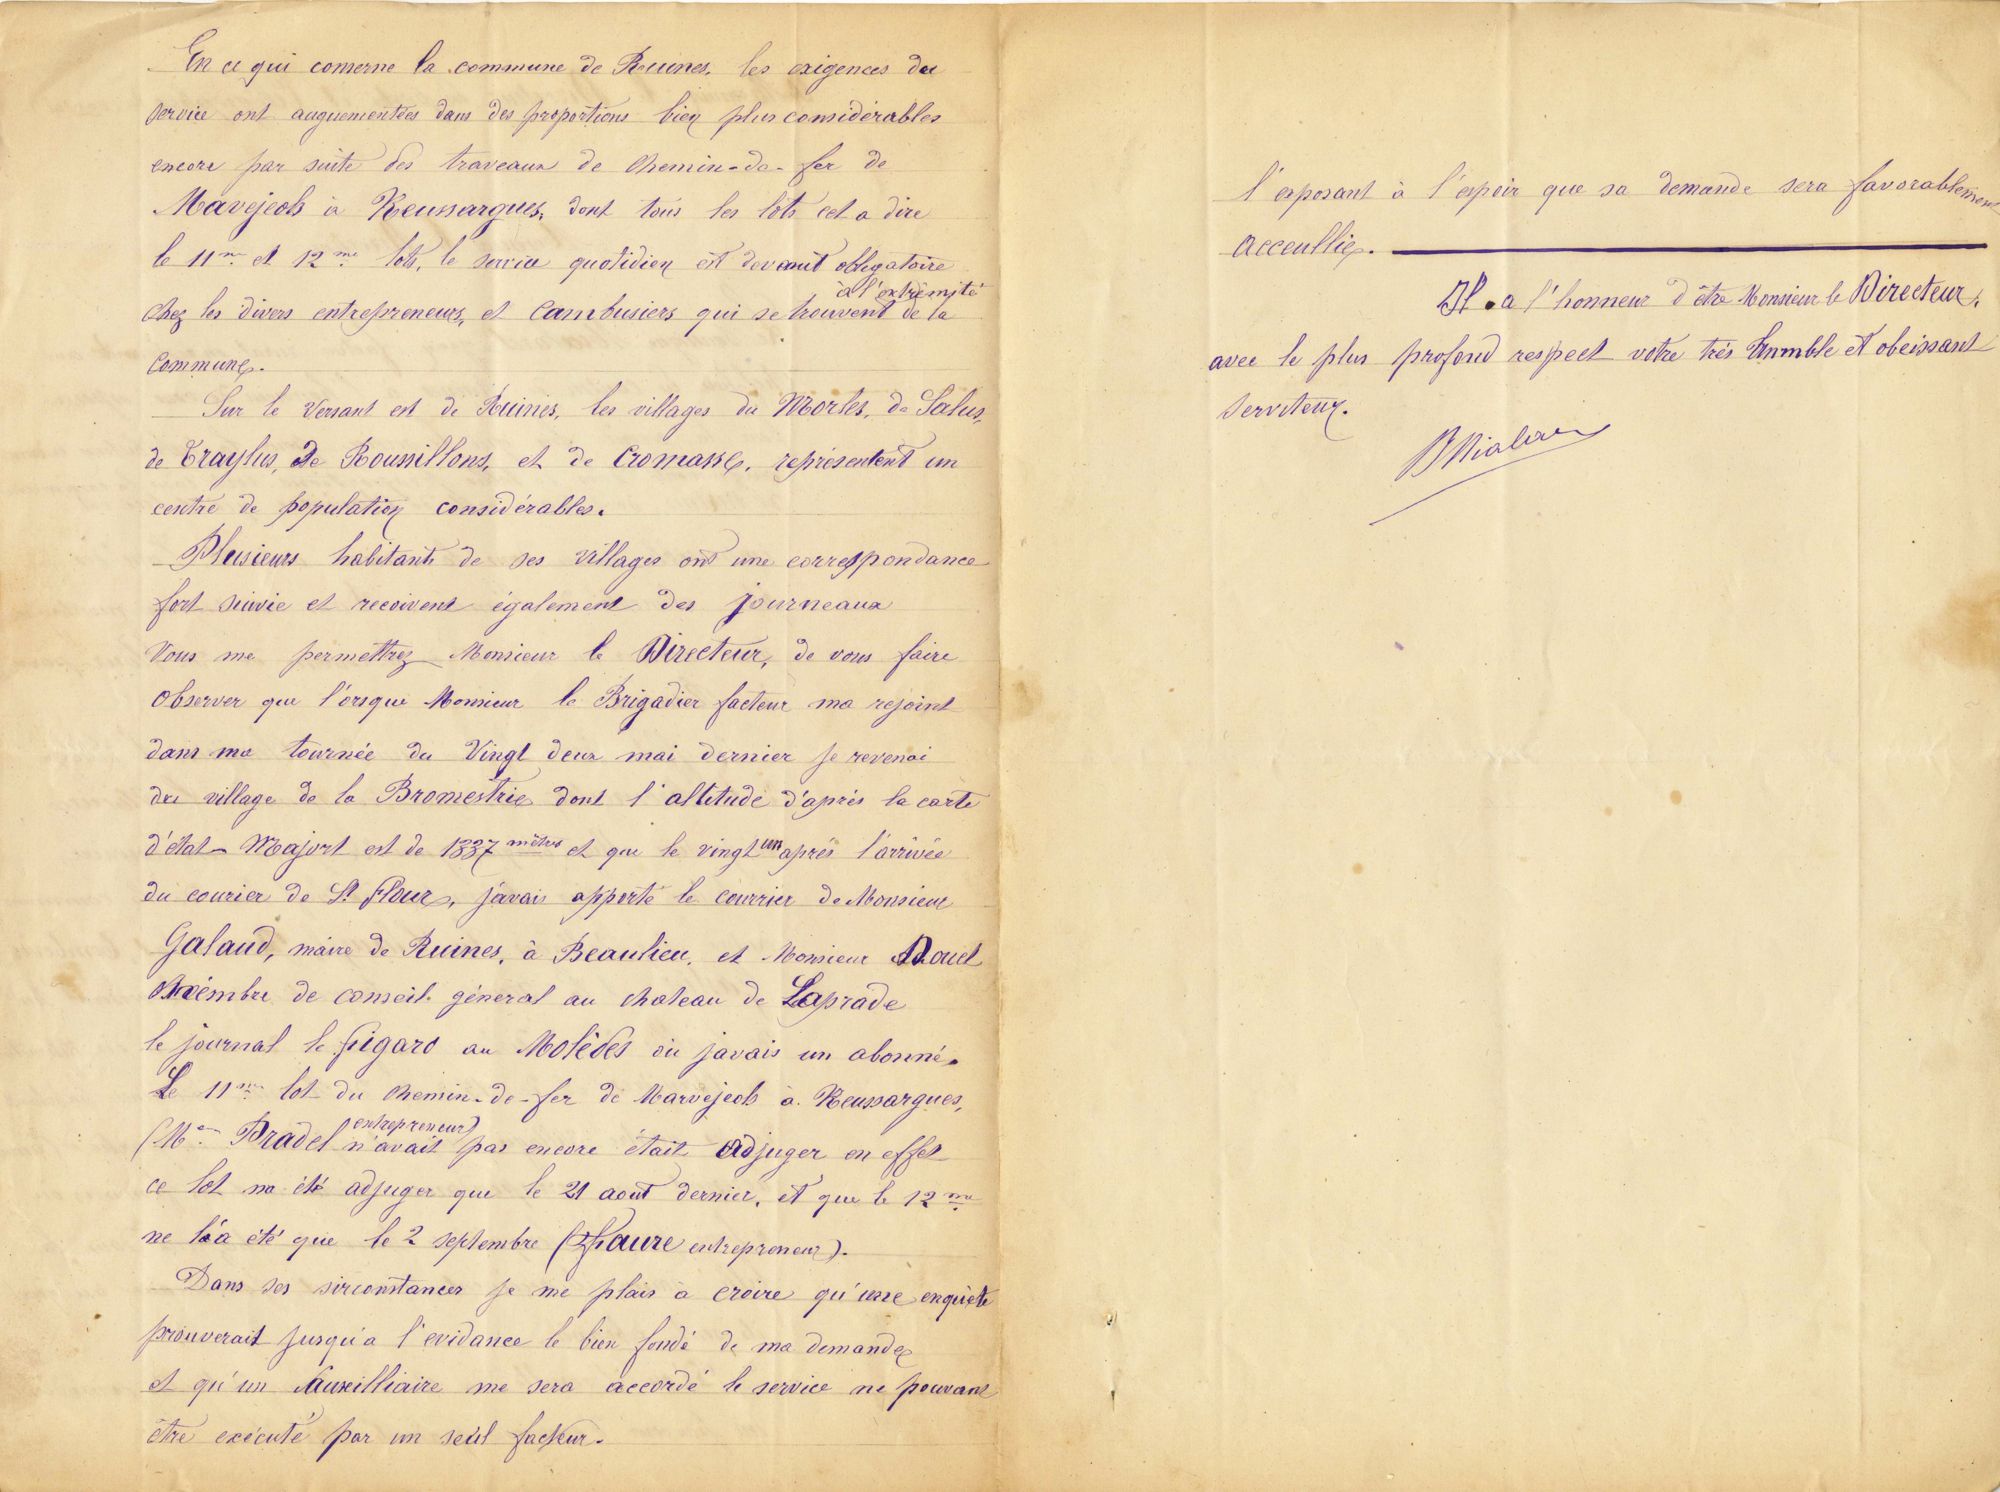 En ce qui conserne la commune de Ruines, les exigences du
service ont auguementées dans des proportions bien plus considérables
encore par suite des traveaux de chemin-de-fer de
Mavejeols à Neussargues, dont tous les lots cet a dire
le 11me et 12me lots, le service quotidien est devenut obligatoire
à l'extrémité
chez les divers entrepreneurs, et cambusiers qui se trouvent de la
commune.
Sur le versant est de Ruines, les villages du Morles, de Salus,
de Traylus, de Roussillons, et de Cromasse, représentent un
centre de population considérables.
Plusieurs habitants de ses villages ont une correspondance
fort suivie et recoivent également des journeaux
Vous me permettrez Monsieur le Directeur, de vous faire
observer que l'orsque Monsieur le Brigadier facteur ma rejoint
dans ma tournée du Vingt deux mai dernier je revenai
du village de la Bromestrie dont l'altitude d'après la carte
d'état-Majort est de 1337 mètres et que le vingt un après l'arrivée
du courier de St Flour, j'avais apporté le courrier de Monsieur
Galaud, maire de Ruines, à Beaulieu, et Monsieur
membre de conseil géneral au chateau de Laprade
le journal le figaro au Molèdes où javais un abonné.
Le 11me lot du chemin-de-fer de Marvejeols à Neussargues,
entrepreneur)
Pradel n'avait pas encore était adjuger en effet
ce lot na été adjuger que le 21 aout dernier, et que le 12me
ne l'a été que le 2 septembre (faure entrepreneur).
Dans ses sirconstances je me plais à croire qu'une enquête
prouverait jusqu'a l'evidance le bien fondé de ma demande
et qu'un Auxilliaire me sera accordé le service ne pouvant
être exécuté par un seul facteur.
l'exposant à l'espoir que sa demande sera favorablement
acceullie.
Il a l'honneur d'être Monsieur le Directeur,
avec le plus profond respect votre très humble et obeissant
serviteur.